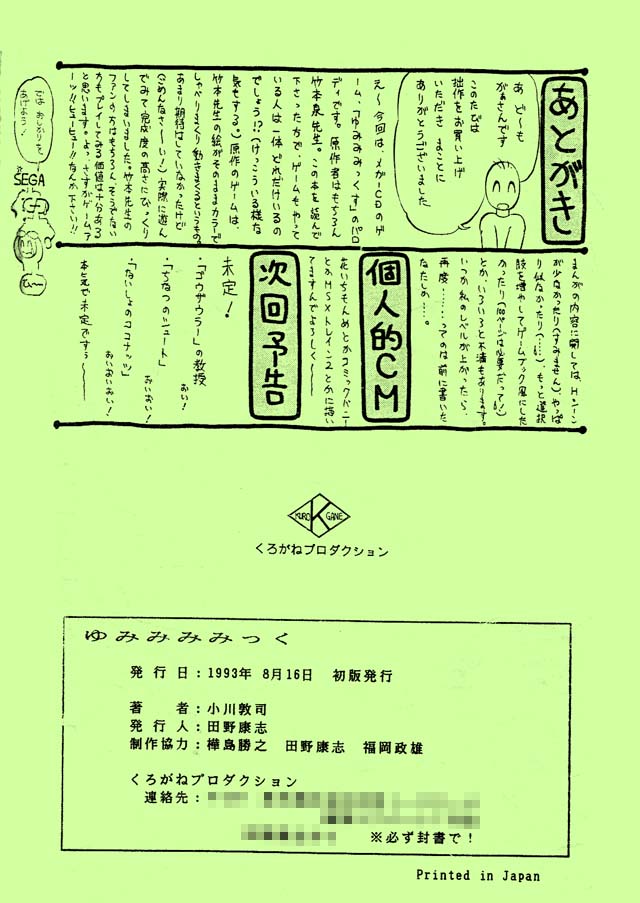 あとがき
あ ど〜も
がぁさんです
このたびは
拙作をお買い上げ
いただき まことに
ありがとうございました
え〜 今回は、メガーCDのゲ
ーム、「ゆみみみっくす」のパロ
ディです。原作者はもちろん
竹本泉先生。この本を読んで
下さった方で、ゲームもやって
いる人は一体どれだけいるの
でしょう!?(けっこういる様な
気もする。)原作のゲームは、
竹本先生の絵がそのままカラーで
しゃべりまくり動きまくるというもの。
あまり期待はしていなかったけど
(ごめんなさ〜い!)実際に遊ん
でみて完成度の高さにびっくり
してしまいました。竹本先生の
ファンの方はもちろん、そうでない
方もプレイしてみる価値は十分ある
と思います。よっ、さすがゲームア
ーツ!!ヒューヒュー!!なんか下さい!!
では おしかりを
あげよう!
SEGA
まんがの内容に関しては、Hシーン
が少なかったり(すみません)、やっぱ
り似なかったり(…)、もっと選択
肢を増やしてゲームブック風にした
かったり(100ページは必要だって!)
とか、いろいろと不満もあります。
いつか私のレベルが上がったら、
再度………ってのは前に書いた
なたしか…。
個人的CM
花いちもんめとかコミックバニー
とかMSXトレイン2とかに描い
てますんでよろしく〜
次回予告
未定!
・「ゴウザウラー」の教授
おい!
・「ちなつのシュート」
おいおい!
・「ないしょのココナッツ」
おいおいおい!
本とに未定ですぅ〜
KURO K GANE
くろがねプロダクション
ゆみみみみっく
発行日：1993年 8月16日 初版発行
著 者：小川敦司
発行人：田野康志
制作協力：樺島勝之 田野康志 福岡政雄
くろがねプロダクション
連絡先：
※必ず封書で！
Printed in Japan